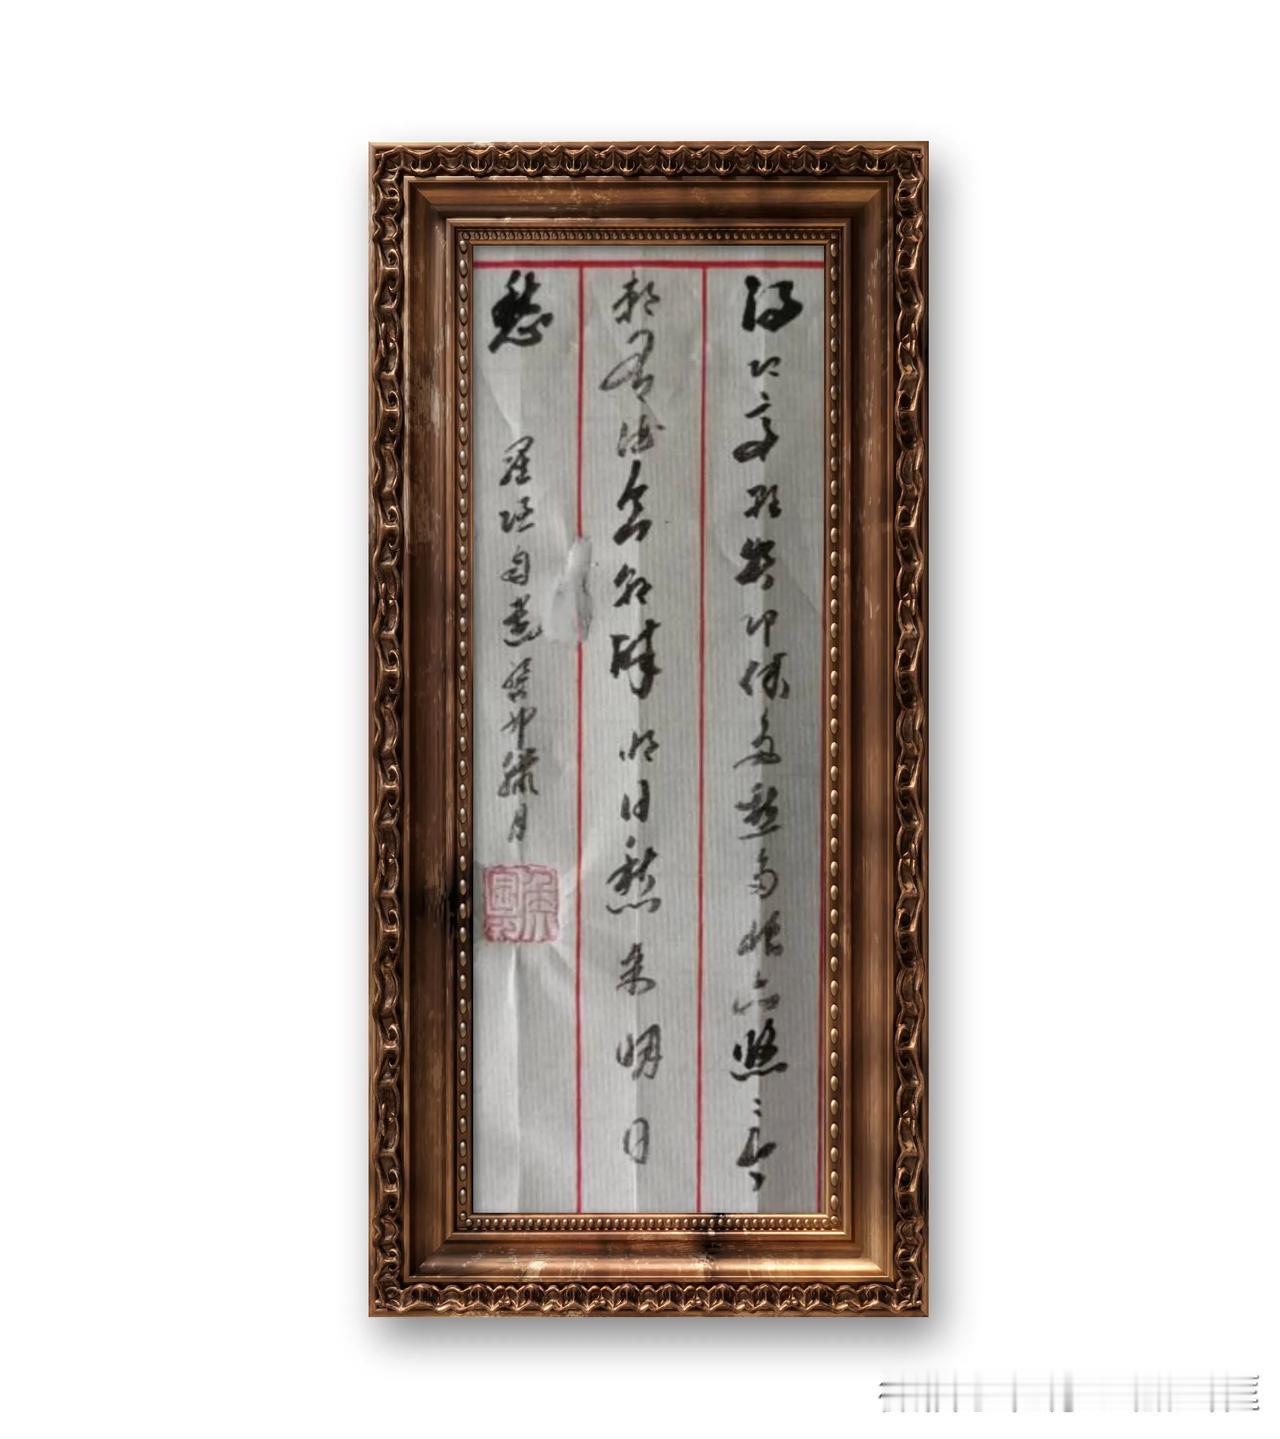 得即高歌失即休多愁多恨亦悠〻今
朝有酒今朝醉明日愁来明日
愁 羅隐自遣癸卯臘月